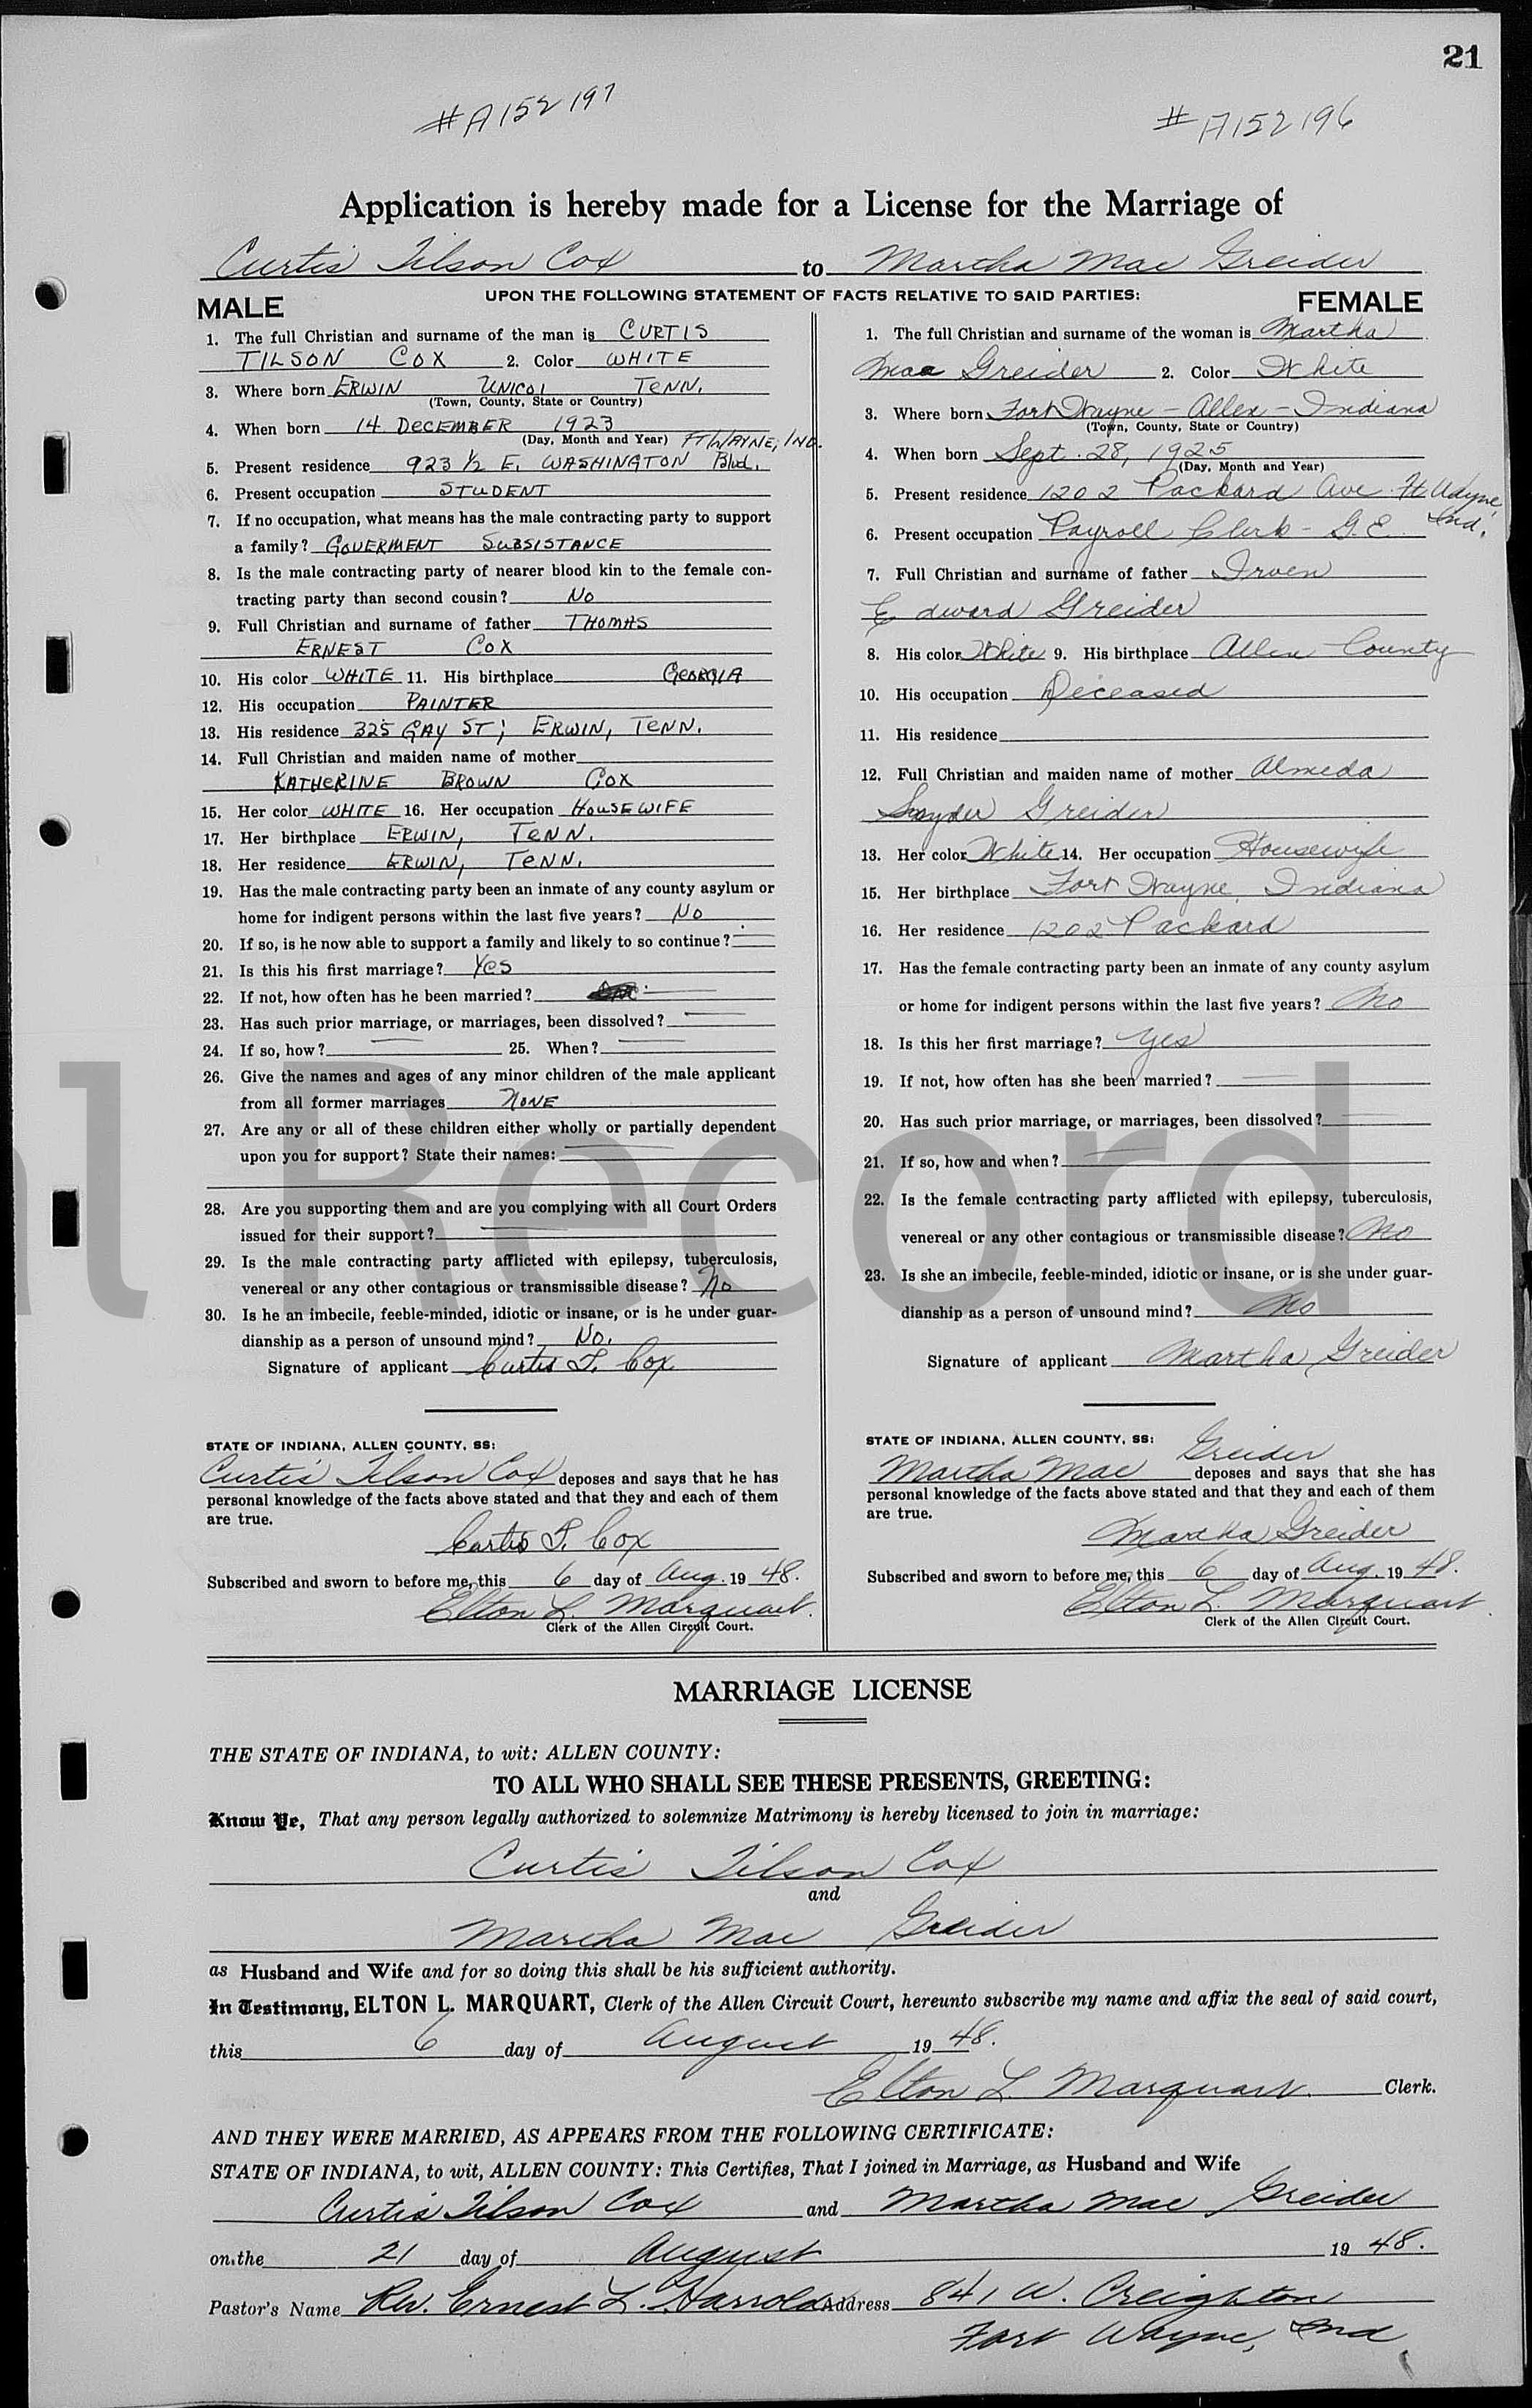 21
#A152197
#A152196
Application is hereby made for a License for the Marriage of
Curtis Tilson Cox to Martha Mae Greider
UPON THE FOLLOWING STATEMENT OF FACTS RELATIVE TO SAID PARTIES:
MALE
1. The full Christian and surname of the man is CURTIS
TILSON COX 2. Color WHITE
3. Where born ERWIN UNICOI TENN.
(Town, County, State or Country)
4. When born 14 DECEMBER 1923
(Day, Month and Year) FT WAYNE, IND.
5. Present residence 923 1/2 E. WASHINGTON Blvd.
6. Present occupation STUDENT
7. If no occupation, what means has the male contracting party to support
a family? GOVERMENT SUBSISTANCE
8. Is the male contracting party of nearer blood kin to the female con-
tracting party than second cousin? NO
9. Full Christian and surname of father THOMAS
ERNEST COX
10. His color WHITE 11. His birthplace GEORGIA
12. His occupation PAINTER
13. His residence 325 GAY ST; ERWIN, TENN.
14. Full Christian and maiden name of mother
KATHERINE BROWN COX
15. Her color WHITE 16. Her occupation HOUSEWIFE
17. Her birthplace ERWIN, TENN.
18. Her residence ERWIN, TENN.
19. Has the male contracting party been an inmate of any county asylum or
home for indigent persons within the last five years? NO
20. If so, is he now able to support a family and likely to so continue?
21. Is this his first marriage? Yes
22. If not, how often has he been married?
23. Has such prior marriage, or marriages, been dissolved?
24. If so, how? 25. When?
26. Give the names and ages of any minor children of the male applicant
from all former marriages NONE
27. Are any or all of these children either wholly or partially dependent
upon you for support? State their names:
28. Are you supporting them and are you complying with all Court Orders
issued for their support?
29. Is the male contracting party afflicted with epilepsy, tuberculosis,
venereal or any other contagious or transmissible disease? No
30. Is he an imbecile, feeble-minded, idiotic or insane, or is he under guar-
dianship as a person of unsound mind? No.
Signature of applicant Curtis T. Cox
STATE OF INDIANA, ALLEN COUNTY, SS:
Curtis Tilson Cox deposes and says that he has
personal knowledge of the facts above stated and that they and each of them
are true.
Curtis T. Cox
Subscribed and sworn to before me, this 6 day of Aug. 19 48.
Elton L. Marquart
Clerk of the Allen Circuit Court.
FEMALE
1. The full Christian and surname of the woman is Martha
Mae Greider 2. Color White
3. Where born Fort Wayne - Allen - Indiana
(Town, County, State or Country)
4. When born Sept. 28, 1925
(Day, Month and Year)
5. Present residence 1202 Packard Ave Ft. Wayne,
Ind.
6. Present occupation Payroll Clerk - G.E.
7. Full Christian and surname of father Irven
Edward Greider
8. His color White 9. His birthplace Allen County
10. His occupation Deceased
11. His residence
12. Full Christian and maiden name of mother Almeda
Snyder Greider
13. Her color White 14. Her occupation Housewife
15. Her birthplace Fort Wayne, Indiana
16. Her residence 1202 Packard
17. Has the female contracting party been an inmate of any county asylum
or home for indigent persons within the last five years? No
18. Is this her first marriage? Yes
19. If not, how often has she been married?
20. Has such prior marriage, or marriages, been dissolved?
21. If so, how and when?
22. Is the female contracting party afflicted with epilepsy, tuberculosis,
venereal or any other contagious or transmissible disease? No
23. Is she an imbecile, feeble-minded, idiotic or insane, or is she under guar-
dianship as a person of unsound mind? No
Signature of applicant Martha Greider
STATE OF INDIANA, ALLEN COUNTY, SS:
Greider
Martha Mae deposes and says that she has
personal knowledge of the facts above stated and that they and each of them
are true.
Martha Greider
Subscribed and sworn to before me, this 6 day of Aug. 19 48.
Elton L. Marquart
Clerk of the Allen Circuit Court.
l Record
MARRIAGE LICENSE
THE STATE OF INDIANA, to wit: ALLEN COUNTY:
TO ALL WHO SHALL SEE THESE PRESENTS, GREETING:
Know Ye, That any person legally authorized to solemnize Matrimony is hereby licensed to join in marriage:
Curtis Tilson Cox
and
Martha Mae Greider
as Husband and Wife and for so doing this shall be his sufficient authority.
In Testimony, ELTON L. MARQUART, Clerk of the Allen Circuit Court, hereunto subscribe my name and affix the seal of said court,
this 6 day of August 19 48.
Elton L. Marquart Clerk.
AND THEY WERE MARRIED, AS APPEARS FROM THE FOLLOWING CERTIFICATE:
STATE OF INDIANA, to wit, ALLEN COUNTY: This Certifies, That I joined in Marriage, as Husband and Wife
Curtis Tilson Cox and Martha Mae Greider
on the 21 day of August 19 48.
Pastor's Name Rev. Ernest L. Harrold Address 841 W. Creighton
Fort Wayne, Ind.